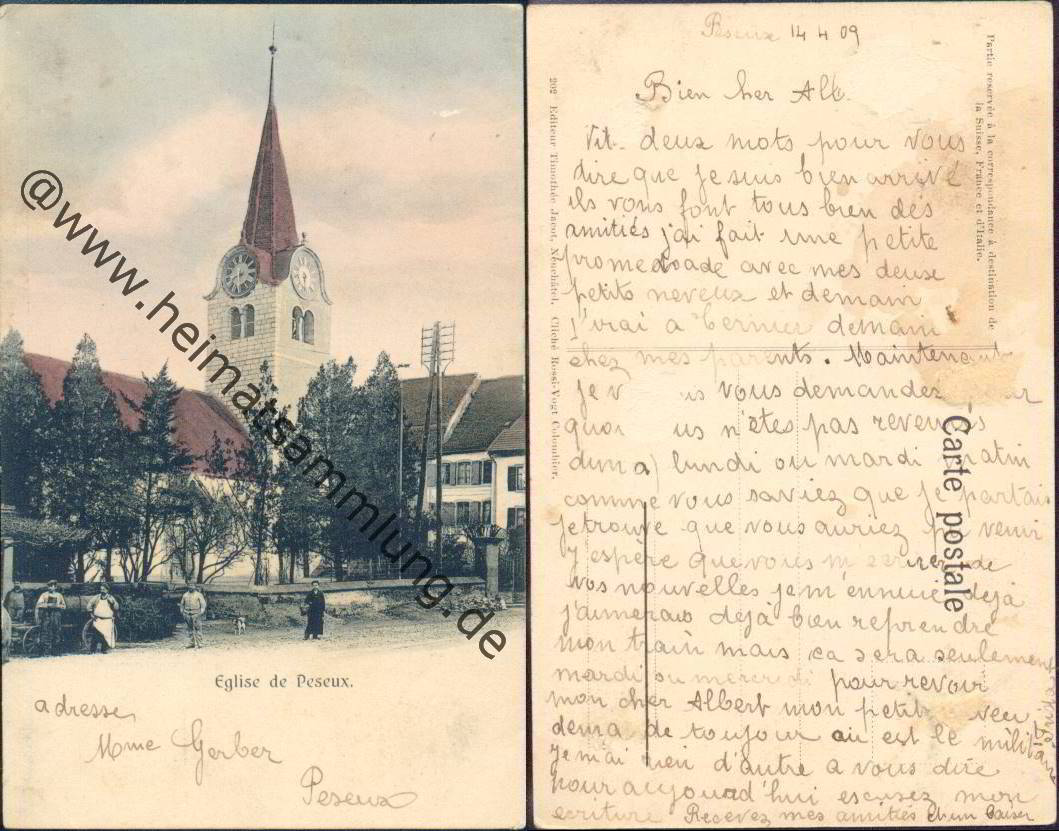 @www.heimatsammlung.de
Eglise de Peseux.
adresse,
Mme Gerber
Peseux
Peseux 14 4 09
Bien cher Alb.
Vit. deux mots pour vous
dire que je suis bien arrivé
ils vous font tous bien des
amitiés j'ai fait une petite
promenade avec mes deux
petits neveux et demain
j'irai a demain
chez mes parents. Maintenant
je vous demandez
quoi n'êtes pas revenus
lundi ou mardi matin
comme vous saviez que je partais
je trouve que vous auriez pu venir
J'espère que vous m'ecrirez de
vos nouvelles je m'ennuie déjà
j'aimerais dejà bien reprendre
mon train mais ca sera seulement
mardi ou mercredi pour revoir
mon cher Albert mon petit
de toujour est le militaire
Je n'ai rien d'autre a vous dire
pour aujourd'hui escusez mon
ecriture Recevez mes amitiés Et un Baiser
Partie reservée à la correspondance à destination de
la Suisse, France et d'Italie.
Carte postale
202 Editeur Timothée Jacot, Neuchâtel, Cliché Rossi-Vogt Colombier.